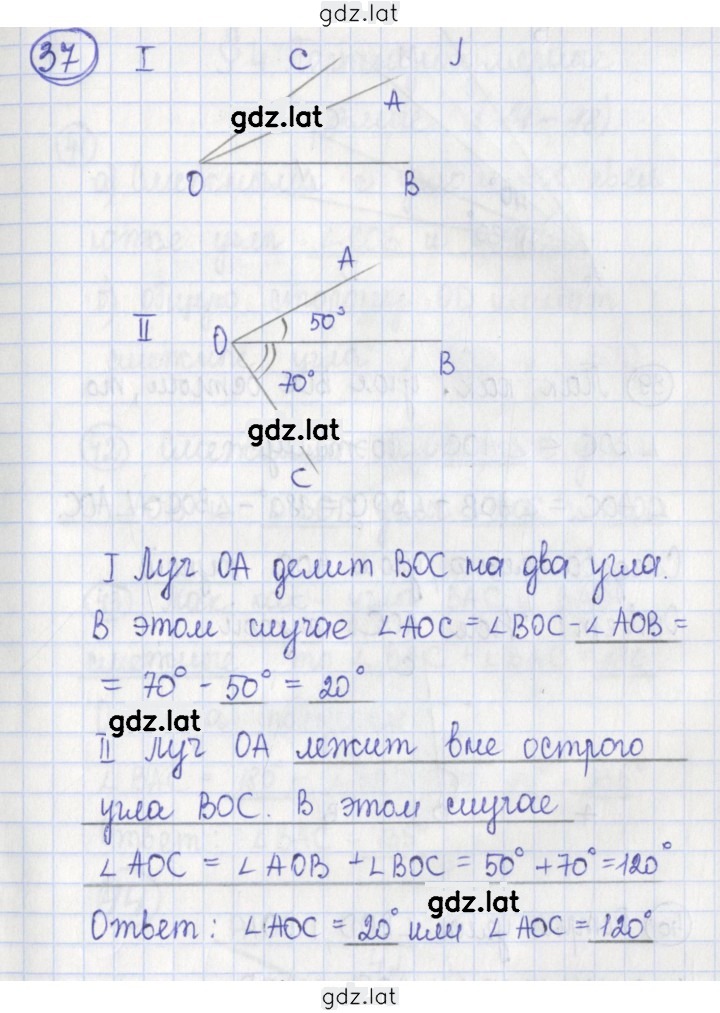 gdz.lat
37 I C J
A
gdz.lat
O B
A
II O 50°
B
70°
gdz.lat
C
I Луч OA делит BOC на два угла.
В этом случае ∠AOC = ∠BOC - ∠AOB =
= 70° - 50° = 20°
gdz.lat
II Луч OA лежит вне острого
угла BOC. В этом случае
∠AOC = ∠AOB + ∠BOC = 50° + 70° = 120°
gdz.lat
Ответ: ∠AOC = 20° или ∠AOC = 120°
gdz.lat